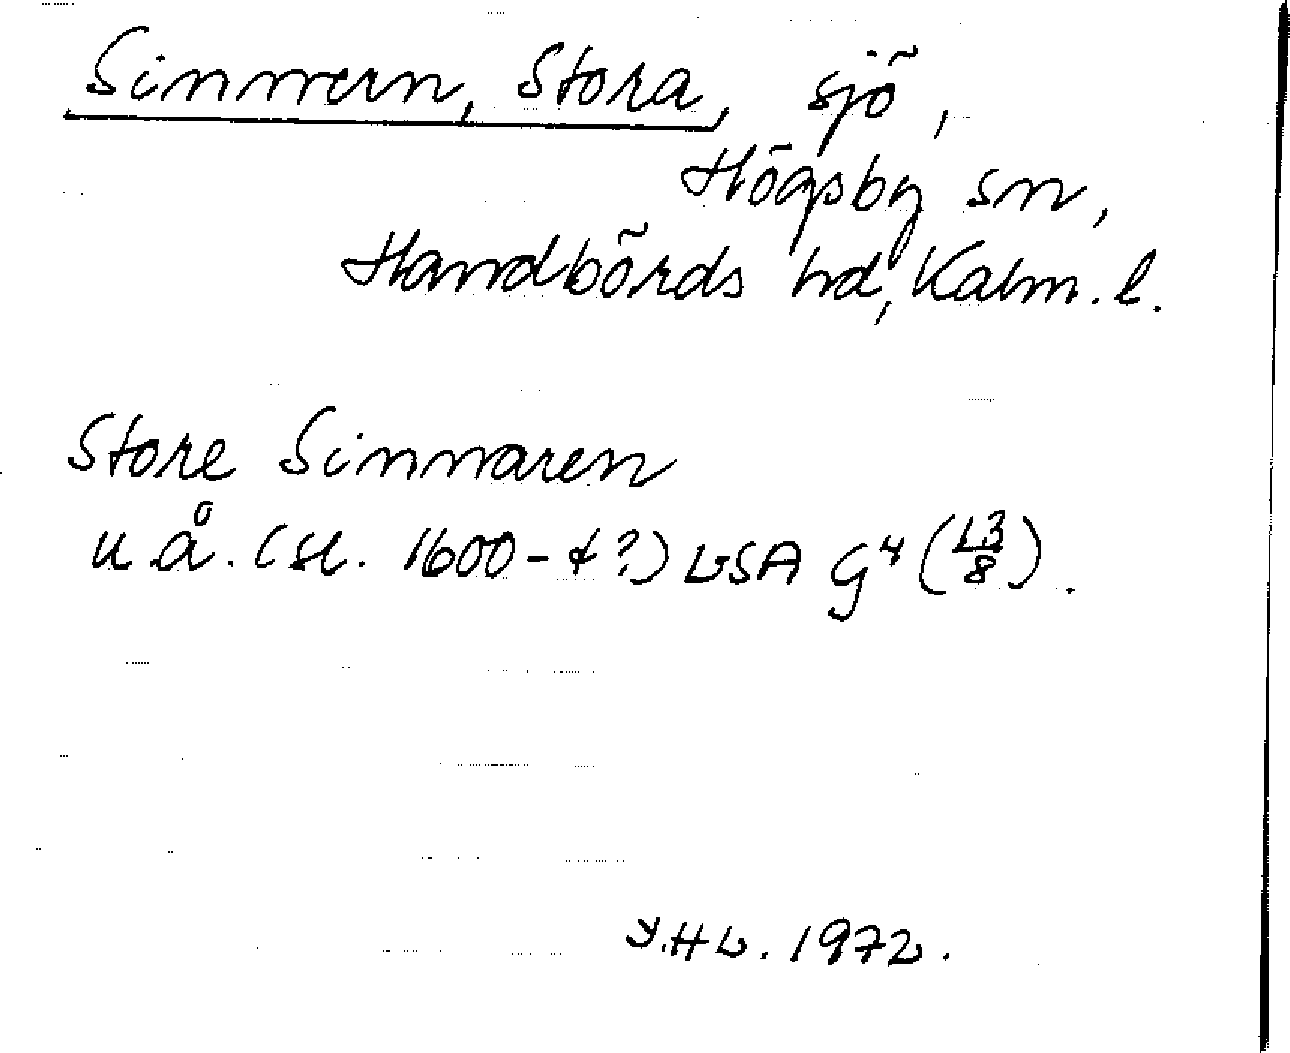 Sinnern, Stora, sjö,
Högsby sn,
Handbörds hd, Kalm. l.
Store Sinnaren
u.å. (sl. 1600-t?) LSA G4 (13/8).
Y.HL. 1972.